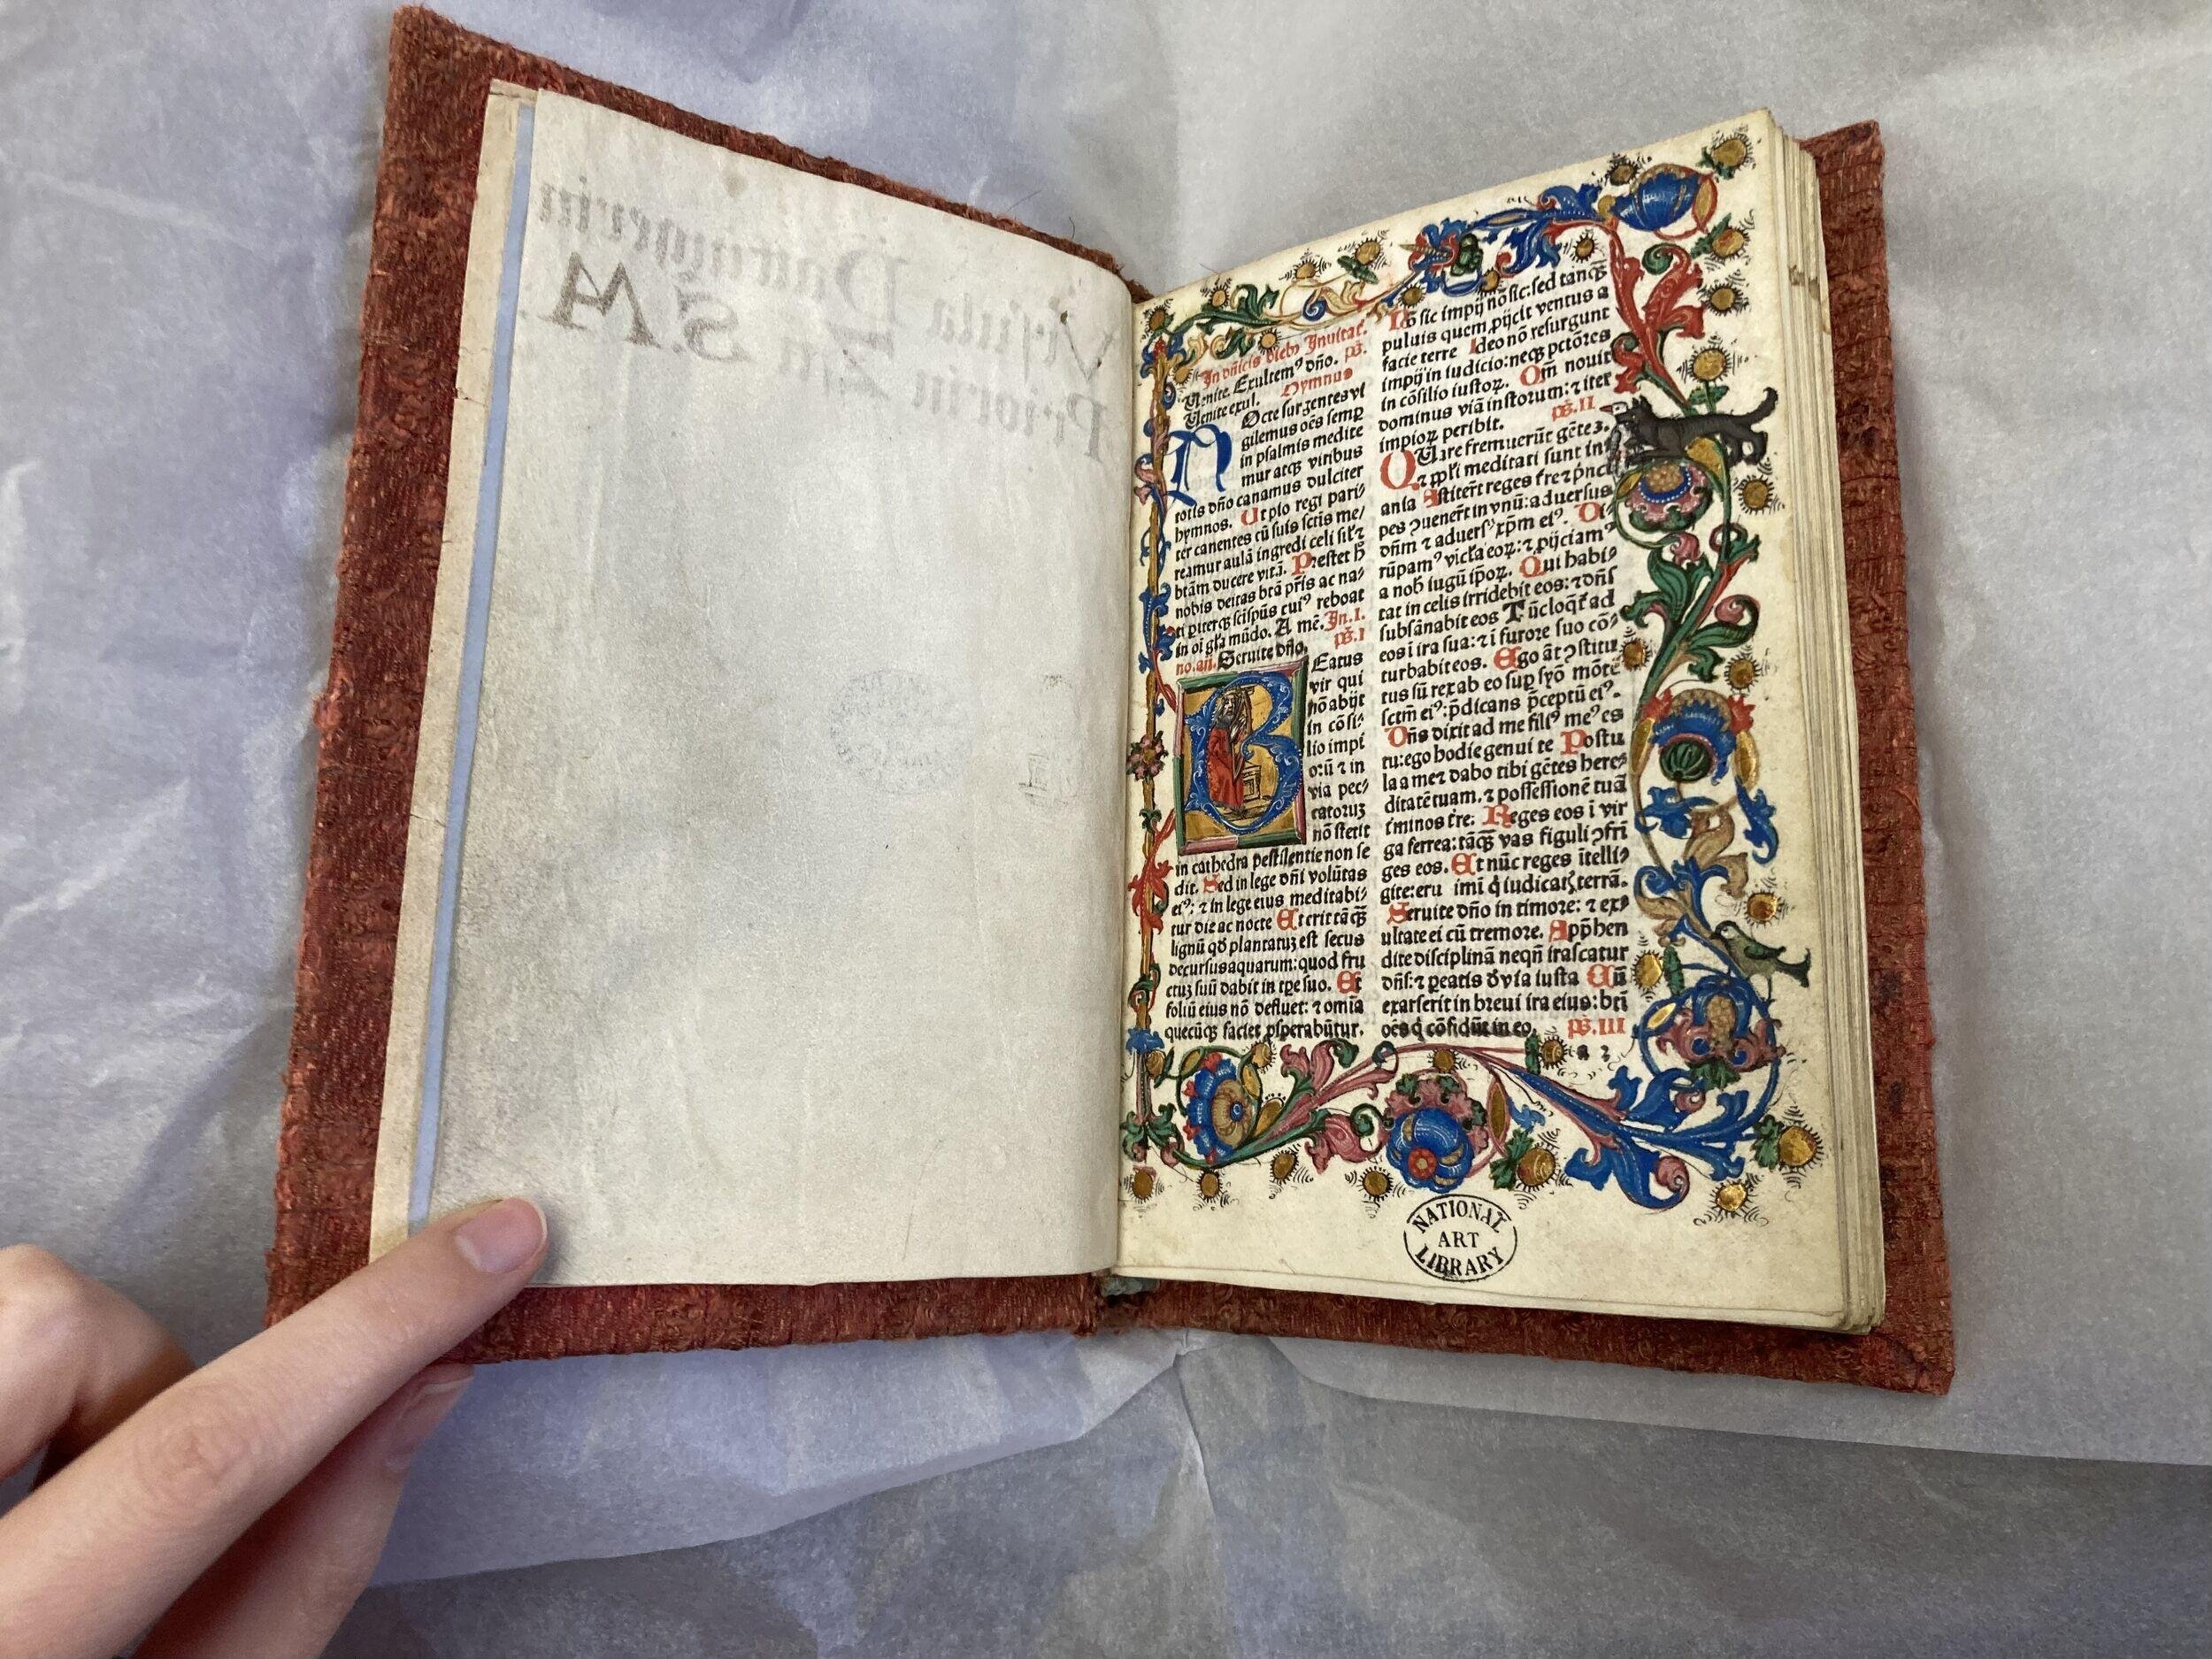 In dñicis dieb⁹ Inuitat.
Venite. Exultem⁹ dño. ps̄.
Venite exul. Hymnus
NOcte surgentes vi
gilemus oēs semp
in psalmis medite
mur atqꝫ viribus
totis dño canamus dulciter
hymnos. Ut pio regi pari
ter canentes cū suis sctīs me/
reamur aulā ingredi celi sil'⁊
btām ducere vitā. Prestet h̄
nobis deitas btā pr̄is ac na/
in oī gl'a mūdo. A mē. In. I.
no. añ. Seruite dño. ps̄. I
BEatus
vir qui
nō abijt
in cōsi⸗
lio impi
oꝛū ⁊ in
via pec⸗
catoruꝫ
nō stetit
in cathedra pestilentie non se
dit. Sed in lege dñi volūtas
ei⁹: ⁊ in lege eius meditabi⸗
tur die ac nocte Et erit tāqꝫ
lignū qd̄ plantatuꝫ est secus
decursus aquarum: quod fru
ctuꝫ suū dabit in tꝑe suo. Et
foliū eius nō defluet: ⁊ omīa
quecūqꝫ faciet ꝓsperabūtur.
Nō sic impij nō sic: sed tanqꝫ
puluis quem ꝓijcit ventus a
facie terre Ideo nō resurgunt
impij in iudicio: neqꝫ pctōres
in cōsilio iustoꝝ. Qm̄ nouit
dominus viā iustorum: ⁊ iter
impioꝝ peribit. ps̄. II
QUare fremuerūt gētes.
⁊ ppl'i meditati sunt in⸗
ania Astiterūt reges tr̄e ⁊ pⁱnci
pes ꝯuenerūt in vnū: aduersus
dñm ⁊ aduers⁹ xp̄m ei⁹. Di
rūpam⁹ vicl'a eoꝝ: ⁊ ꝓijciam⁹
a nob̄ iugū ip̄oꝝ. Qui habi⸗
tat in celis irridebit eos: ⁊ dñs
subsānabit eos Tūc loqͥt̄ ad
eos ī ira sua: ⁊ ī furore suo cō⸗
turbabit eos. Ego āt ꝯstitu
tus sū rex ab eo suꝑ syō mōtē
sctm̄ ei⁹: p̄dicans p̄ceptū ei⁹.
Dñs dixit ad me fili⁹ me⁹ es
tu: ego hodie genui te Postu
la a me ⁊ dabo tibi gētes here⸗
ditatē tuam. ⁊ possessionē tuā
t'minos tr̄e: Reges eos ī vir
ga ferrea: tāqꝫ vas figuli ꝯfrī
ges eos. Et nūc reges ītelli⸗
gite: eru imī qͥ iudicat̄ terrā.
Seruite dño in timore: ⁊ ex⸗
ultate ei cū tremore. Appͥhen
dite disciplinā neqñ irascatur
dñs: ⁊ ꝑeatis d' via iusta Cū
exarserit in breui ira eius: btī
oēs qͥ cōfidūt in eo. ps̄. III
a 2
NATIONAL
ART
LIBRARY